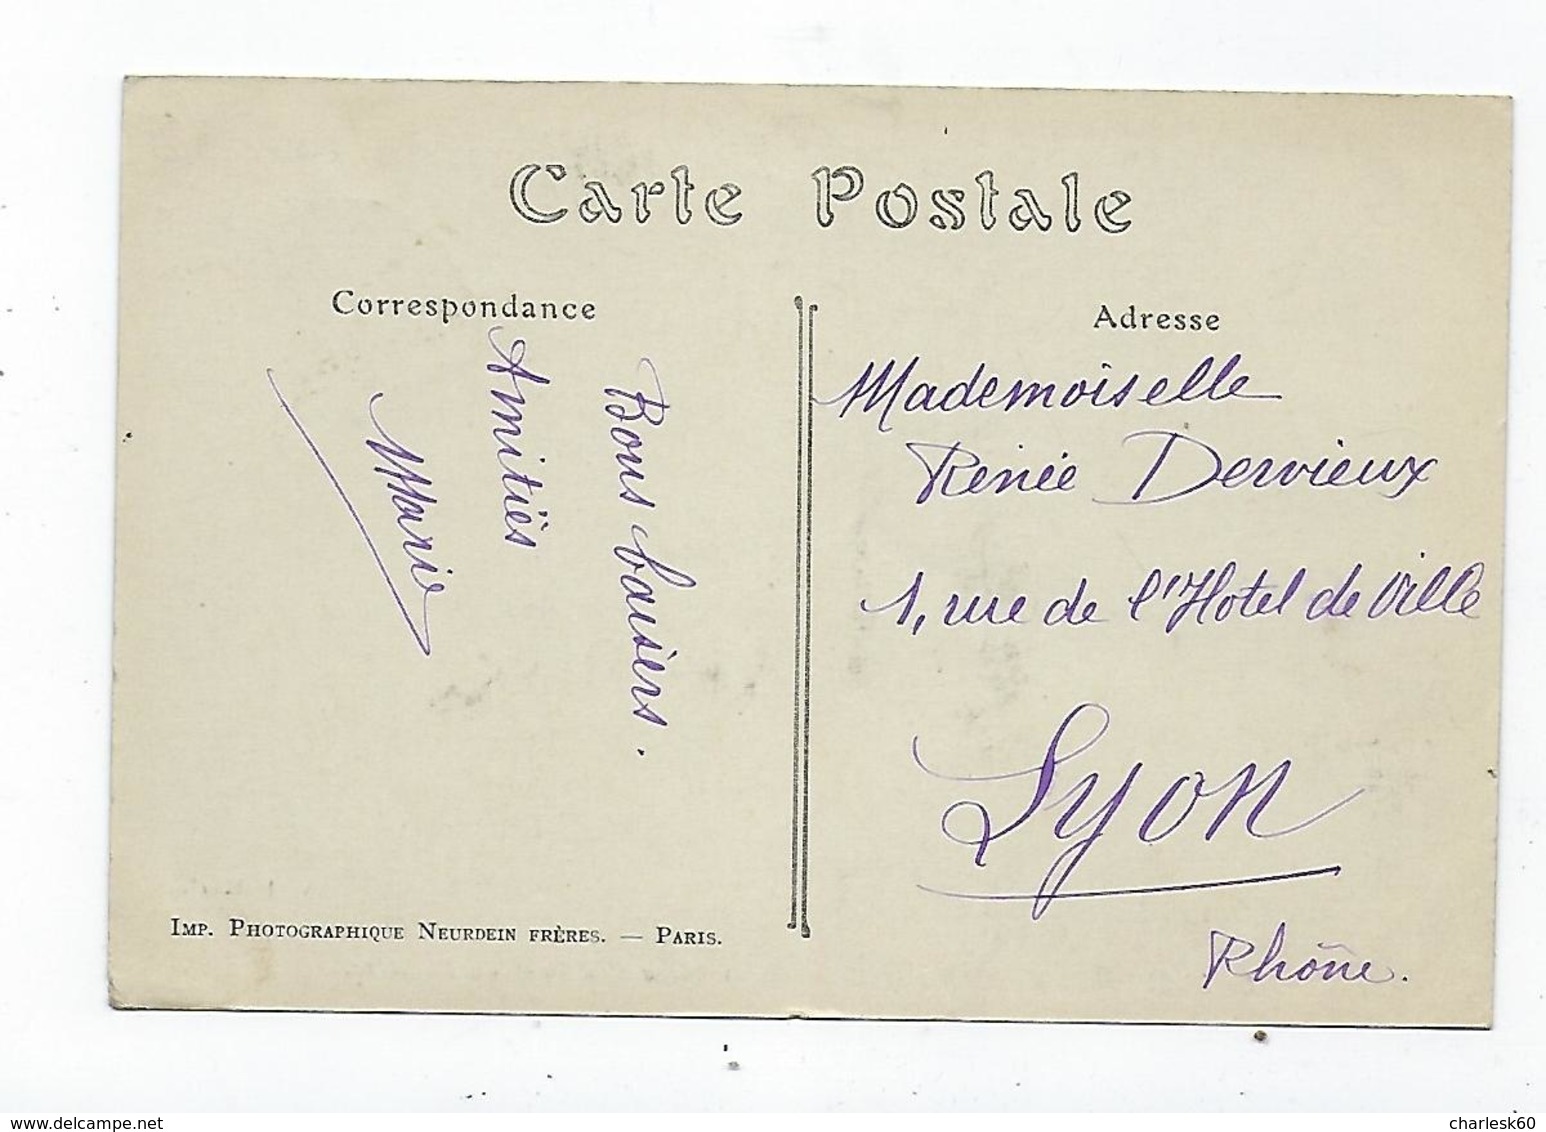 Carte Postale
Correspondance
Bons baisers.
Amitiés
Marie
Imp. Photographique Neurdein frères. — Paris.
Adresse
Mademoiselle
Renée Dervieux
1, rue de l'Hotel de Ville
Lyon
Rhône.
www.delcampe.net
charlesk60